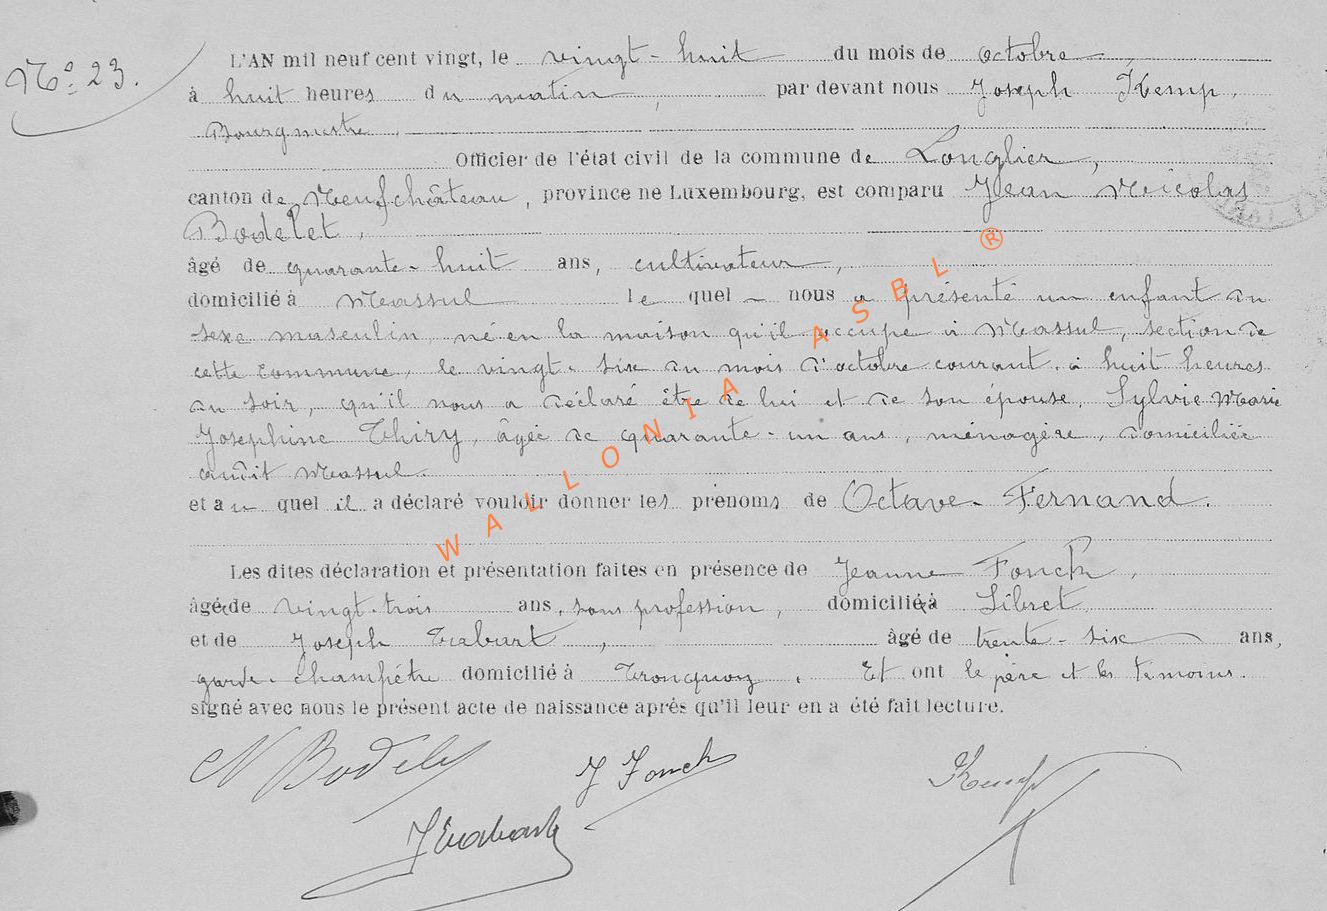 N° 23.
L'AN mil neuf cent vingt, le vingt-huit du mois de octobre,
à huit heures du matin, par devant nous Joseph Kemp,
Bourgmestre,
Officier de l'état civil de la commune de Longlier,
canton de Neufchâteau, province de Luxembourg, est comparu Jean Nicolas
Bodelet,
âgé de quarante-huit ans, cultivateur,
domicilié à Massul lequel nous a présenté un enfant du
sexe masculin, né en la maison qu'il occupe à Massul, section de
cette commune, le vingt-six du mois d'octobre courant, à huit heures
du soir, qu'il nous a déclaré être de lui et de son épouse, Sylvie Marie
Josephine Thiry, âgée de quarante-un ans, ménagère, domiciliée
audit Massul.
et au quel il a déclaré vouloir donner les prénoms de Octave-Fernand.
Les dites déclaration et présentation faites en présence de Jeanne Fonck,
âgée de vingt-trois ans, sans profession, domiciliée à Sibret
et de Joseph, âgé de trente-six ans,
garde-champêtre domicilié à Tronquoy. Et ont le père et les témoins
signé avec nous le présent acte de naissance après qu'il leur en a été fait lecture.
N Bodelet
J Fonck
Kemp
WALLONIA ASBL ®